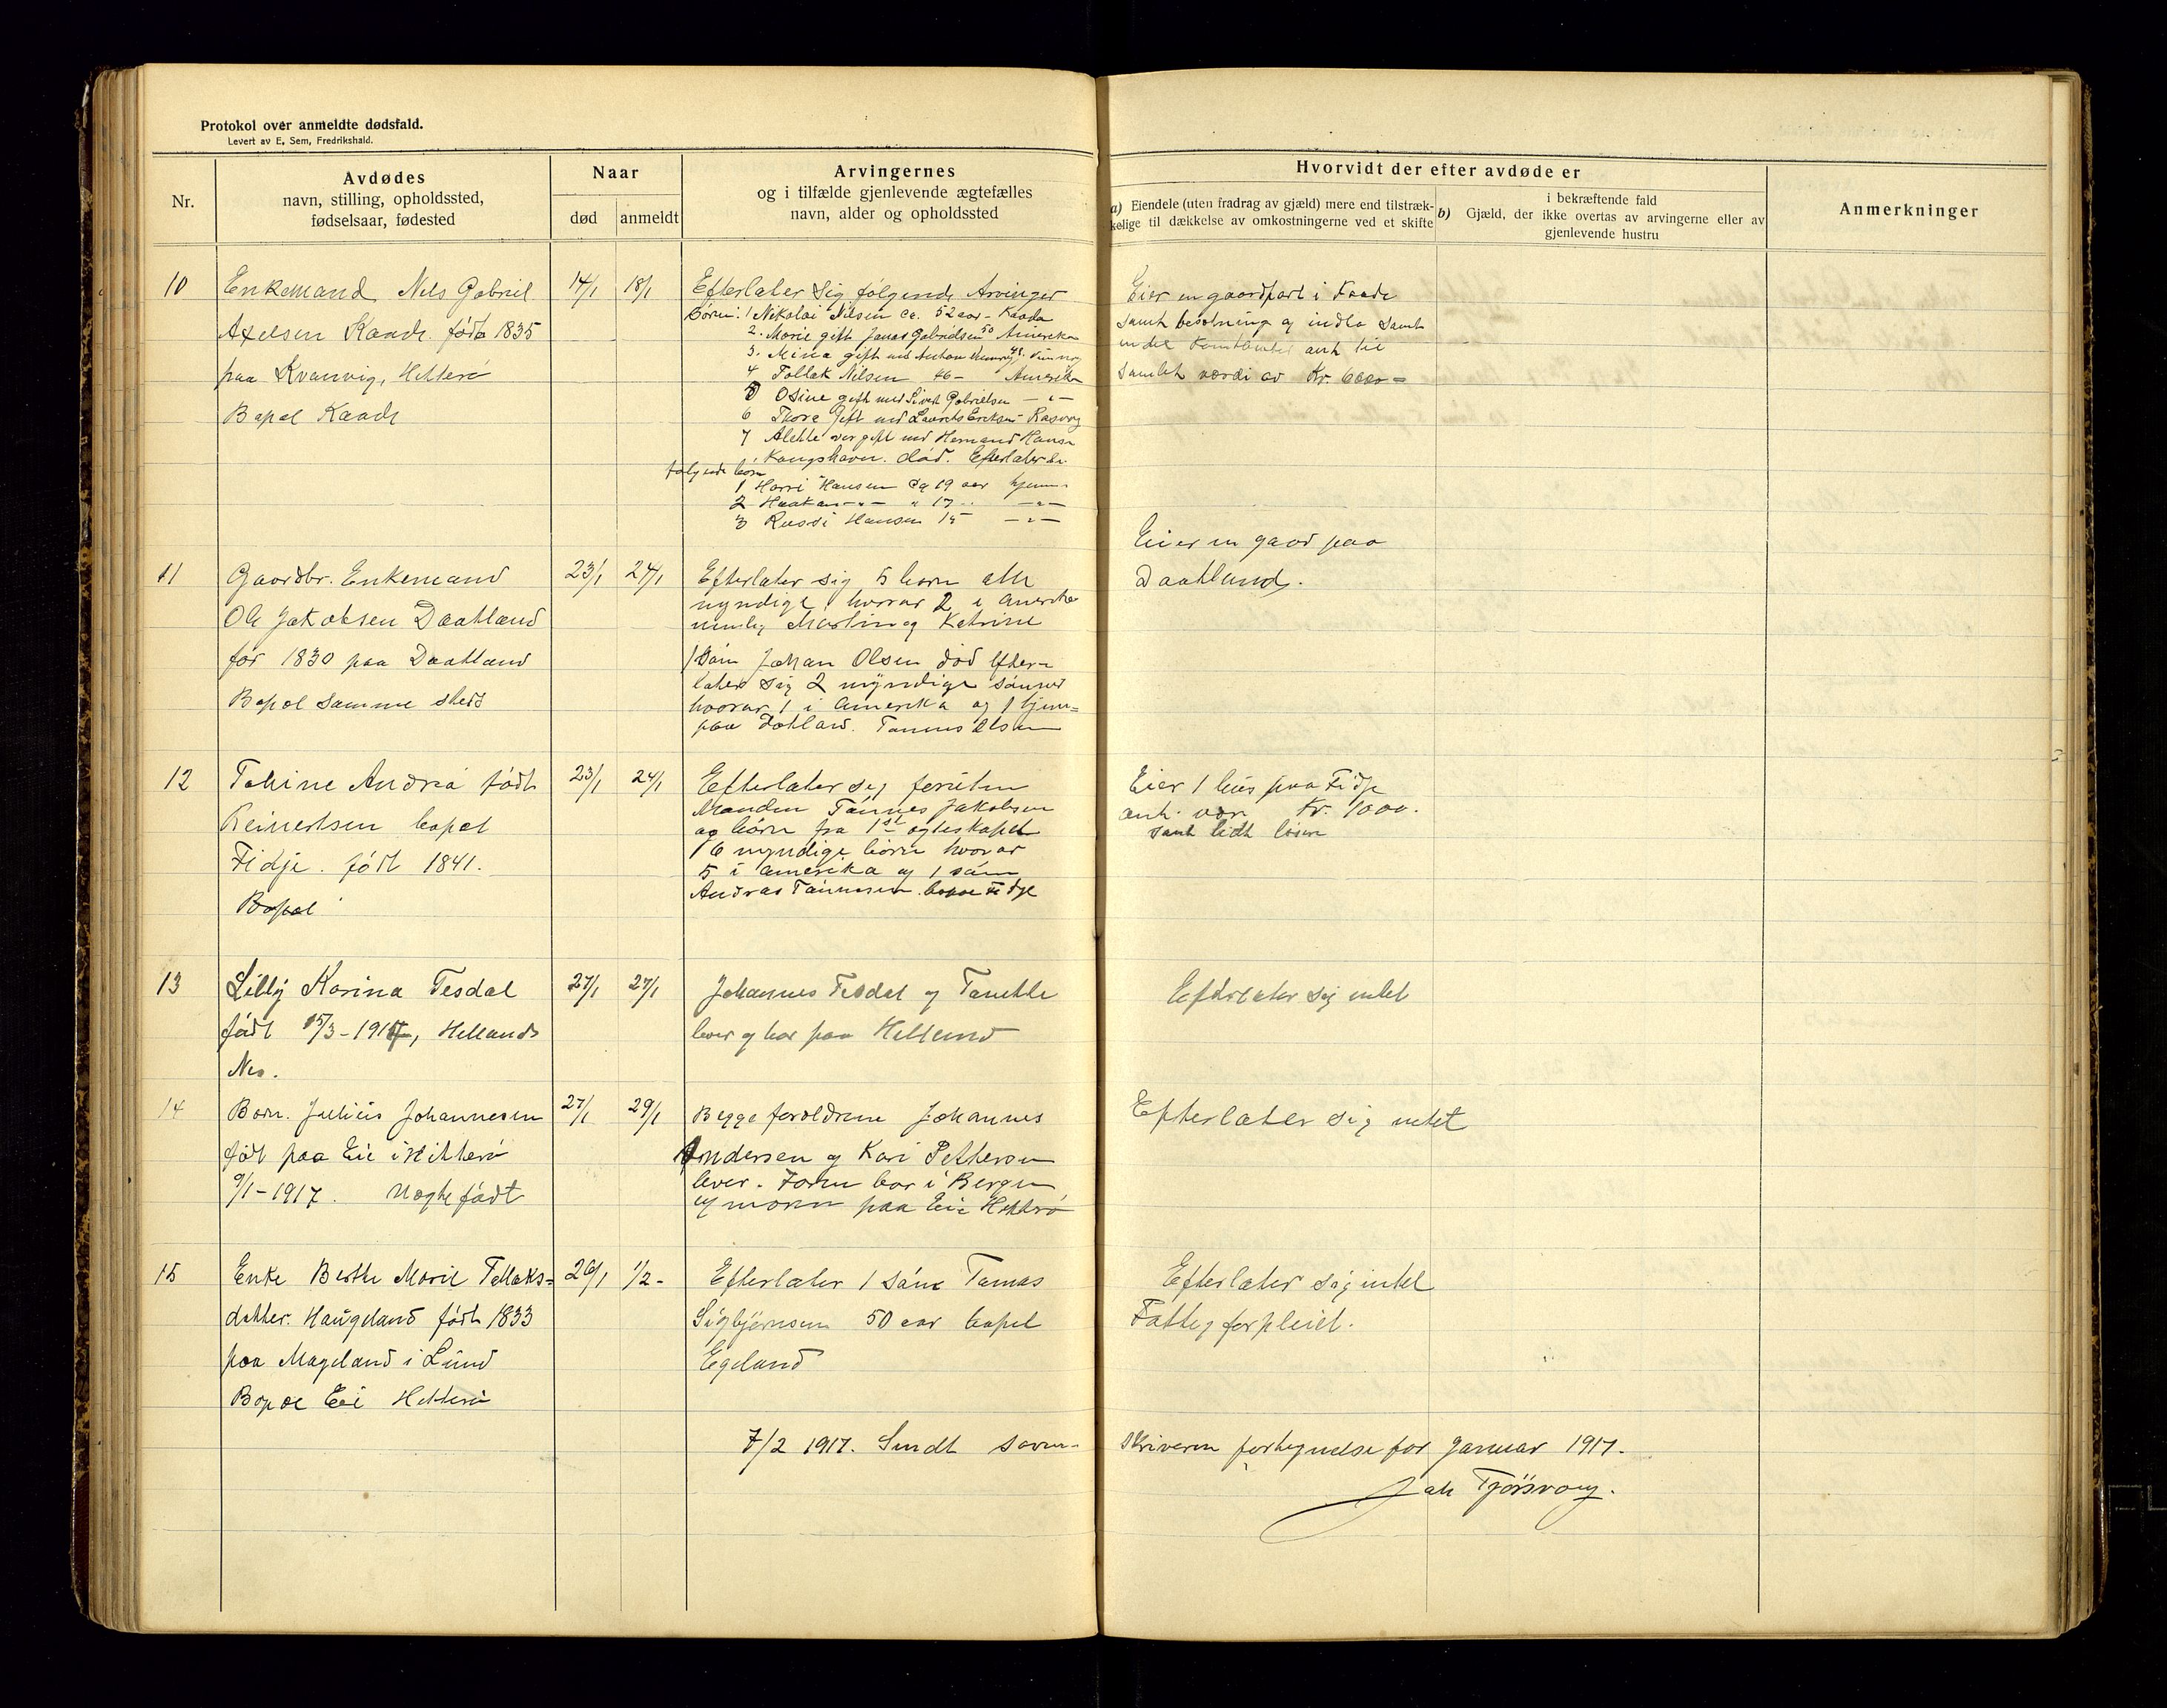 Protokol over anmeldte dødsfald.
Levert av E. Sem, Fredrikshald.
Nr.
Avdødes
navn, stilling, opholdssted,
fødselsaar, fødested
Naar
død
anmeldt
Arvingernes
og i tilfælde gjenlevende ægtefælles
navn, alder og opholdssted
Hvorvidt der efter avdøde er
a) Eiendele (uten fradrag av gjæld) mere end tilstræk-
kelige til dækkelse av omkostningerne ved et skifte
b) i bekræftende fald
Gjæld, der ikke overtas av arvingerne eller av
gjenlevende hustru
Anmerkninger
10
Enkemand Nils Gabriel
Axelsen Kaade født 1835
paa Kvanvig, Hitterø
Bopel Kaade
14/1
18/1
Efterlater sig følgende Arvinger
Børn: 1 Nikolai Nilsen ca. 52 aar - Kaada
2. Marie gift Jonas Gabrielsen 50 Amerika
3. Mina gift med Anton
4 Tollak Nilsen 46 - Amerika
5 Osine gift med Sivert Gabrielsen - " -
6 Thora gift med Laurits Eriksen Rasvag
7 Alette var gift med Hermand Hansen
Kongshavn. død. Efterlater sig
følgende børn
1 Harri Hansen ca 19 aar hjemme
2 Haakan - " - " 17 " - " -
3 Russi Hansen 15 - " -
Eier en gaardpart i Kaade
samt besetning og indbo samt
en del anh til
samlet værdi av Kr. 6000 =
11
Gaardbr. Enkemand
Ole Jakobsen Daatland
før 1830 paa Daatland
Bopel samme steds
23/1
24/1
Efterlater sig 5 børn alle
myndige hvorav 2 i Amerika
nemlig Martin og Katrine
1 Søn Johan Olsen død Efter-
later sig 2 myndige sønner
hvorav 1 i Amerika og 1 hjem=
paa Dotland. Tønnes Olsen
Eier en gaard paa
Daatland.
12
Taline Andrea født
Reinertsen bopel
Fidje. født 1841.
Bopel
23/1
24/1
Efterlater sig foruten
Manden Tønnes Jakobsen
og børn fra 1st ægteskapet
6 myndige børn hvorav
5 i Amerika og 1 søn
Andreas Tønnesen bopel Fidje
Eier 1 hus paa Fidje
anh. vær Kr. 1000.
samt lidt løsøre
13
Lilly Karina Tesdal
født 15/3 - 1917, Hellands
Nes.
27/1
27/1
Johannes Tesdal og Tanette
lever og bor paa Helland
Efterlater sig intet
14
Barn. Julius Johannesen
født paa Eie i Hitterø
9/1 - 1917. Uægtefødt
27/1
29/1
Begge foreldrene Johannes
Andersen og Kari Pettersen
lever. Faren bor i Bergen
og moren paa Eie Hitterø
Efterlater sig intet
15
Enke Berthe Marie Tollaks=
datter. Haugeland født 1833
paa Mageland i Lund
Bopel Eie Hitterø
26/1
1/2 -
Efterlater 1 søn Tomas
Sigbjørnsen 50 aar bopel
Egeland
Efterlater sig intet
Fattig forpleiet.
7/2 1917. Sendt soren-
skriveren fortegnelse for Januar 1917.
Jak Tjørsvaag.